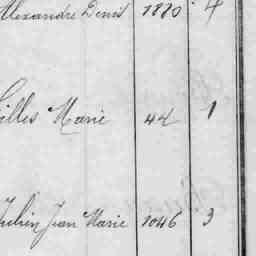 Alexandre Denis 1880 4
Gilles Marie 44 1
Julien Jean Marie 1046 3